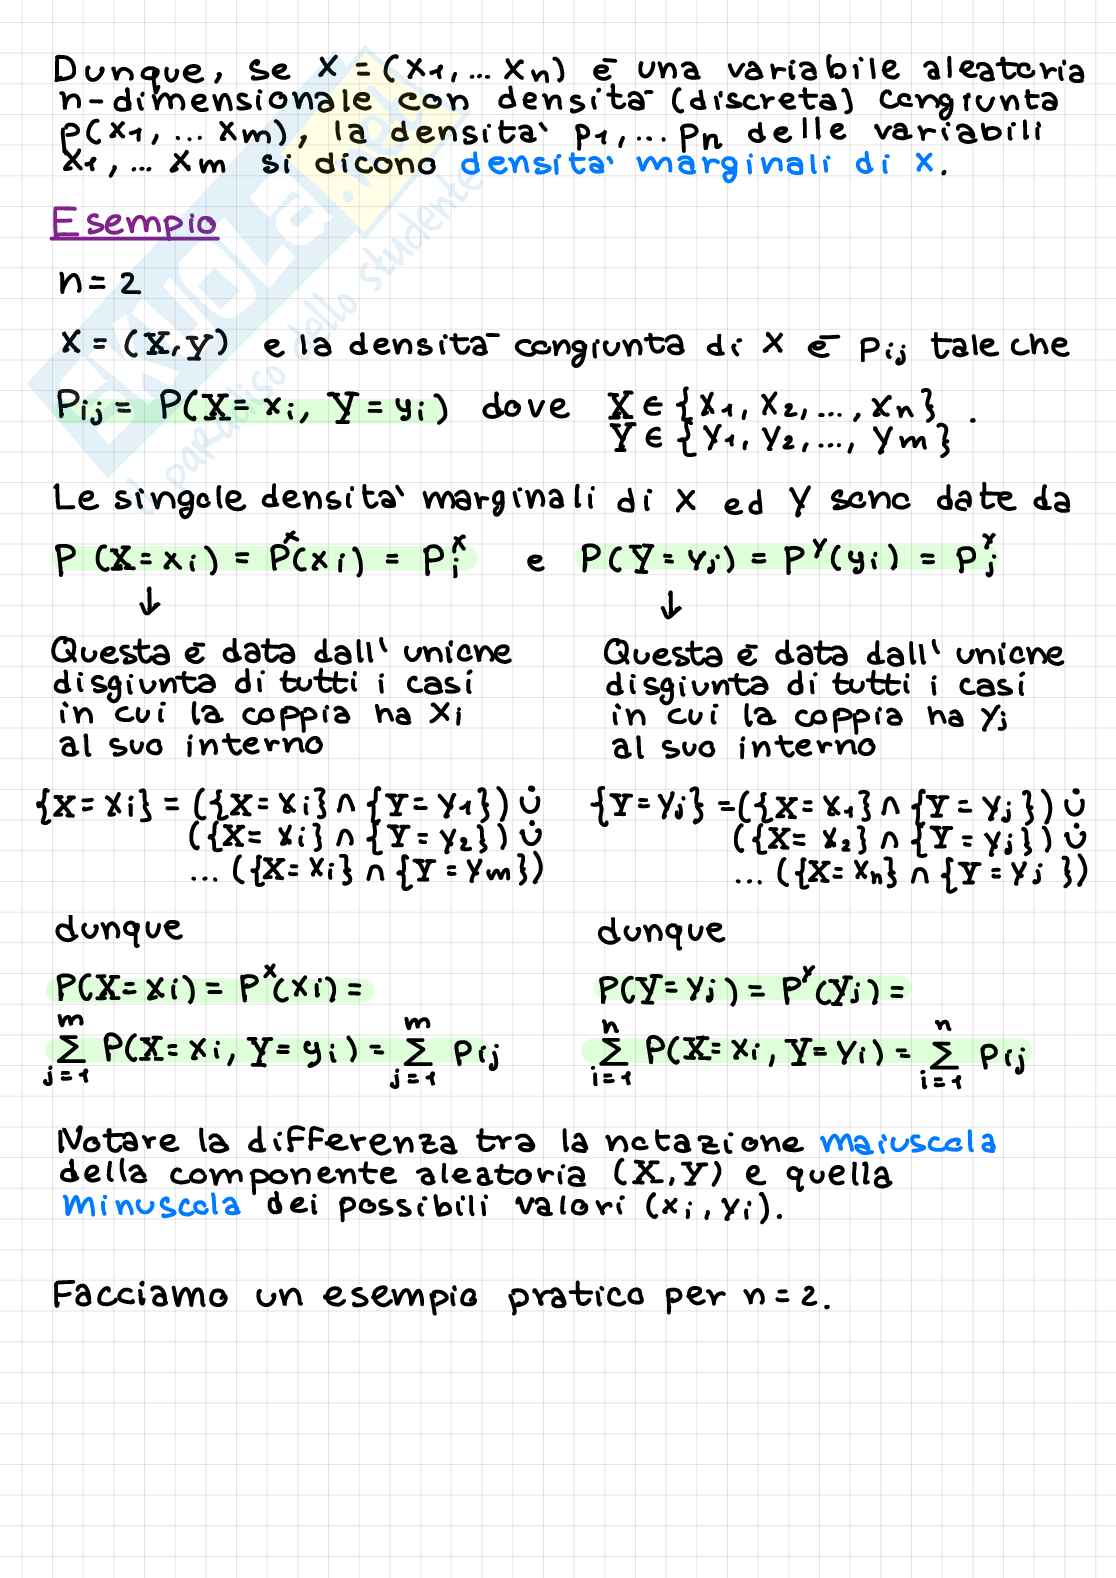 Dunque, se X = (X1, ... Xn) è una variabile aleatoria
n-dimensionale con densità (discreta) congiunta
p(x1, ... xm), la densità p1, ... pn delle variabili
X1, ... Xm si dicono densità marginali di X.
Esempio
n = 2
X = (X, Y) e la densità congiunta di X è Pij tale che
Pij = P(X = xi, Y = yi) dove X ∈ {x1, x2, ..., xn}
Y ∈ {y1, y2, ..., ym} .
Le singole densità marginali di X ed Y sono date da
P (X = xi) = P^X(xi) = Pi^X e P(Y = yj) = P^Y(yi) = Pj^Y
↓ ↓
Questa è data dall' unione
disgiunta di tutti i casi
in cui la coppia ha xi
al suo interno
{X = xi} = ({X = xi} ∩ {Y = y1}) ∪̇
({X = xi} ∩ {Y = y2}) ∪̇
... ({X = xi} ∩ {Y = ym})
dunque
P(X = xi) = P^X(xi) =
∑_{j=1}^{m} P(X = xi, Y = yi) = ∑_{j=1}^{m} Pij
Questa è data dall' unione
disgiunta di tutti i casi
in cui la coppia ha yj
al suo interno
{Y = yj} = ({X = x1} ∩ {Y = yj}) ∪̇
({X = x2} ∩ {Y = yj}) ∪̇
... ({X = xn} ∩ {Y = yj})
dunque
P(Y = yj) = P^Y(yj) =
∑_{i=1}^{n} P(X = xi, Y = yi) = ∑_{i=1}^{n} Pij
Notare la differenza tra la notazione maiuscola
della componente aleatoria (X, Y) e quella
minuscola dei possibili valori (xi, yi).
Facciamo un esempio pratico per n = 2.
SKUOLA.net
paradiso dello studente